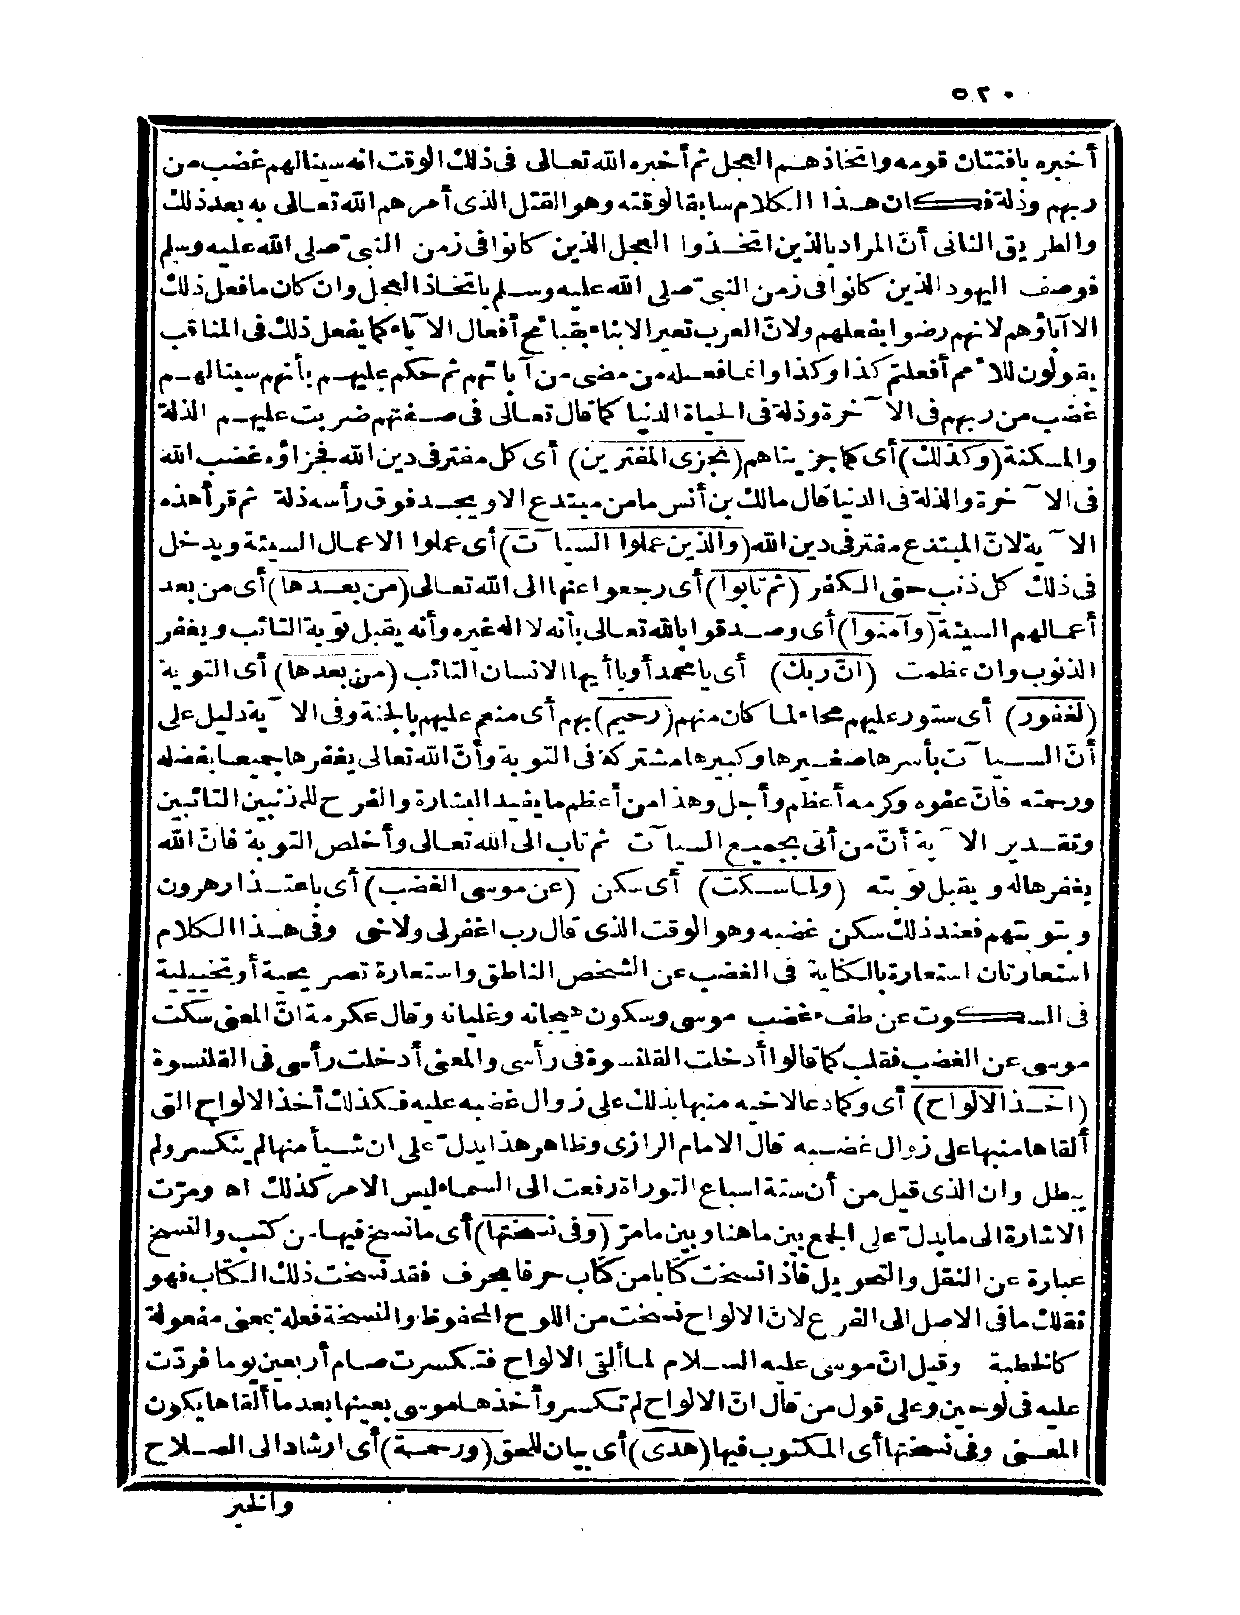 ٥٢٠
أخبره بافتتان قومه واتخاذهم العجل ثم أخبره الله تعالى فى ذلك الوقت انه سينالهم غضب من
ربهم وذلة فكان هذا الكلام سابقا لوقته وهو القتل الذى أمرهم الله تعالى به بعد ذلك
والطريق الثانى أنّ المراد بالذين اتخذوا العجل الذين كانوا فى زمن النبىّ صلى الله عليه وسلم
فوصف اليهود الذين كانوا فى زمن النبىّ صلى الله عليه وسلم باتخاذ العجل وان كان ما فعل ذلك
الا آباؤهم لانهم رضوا بفعلهم ولانّ العرب تعير الابناء بقبائح أفعال الآباء كما يفعل ذلك فى المناقب
يقولون للامم أفعلتم كذا وكذا وانما فعله من مضى من آبائهم ثم حكم عليهم بأنهم سينالهم
غضب من ربهم فى الآخرة وذلة فى الحياة الدنيا كما قال تعالى فى صفتهم ضربت عليهم الذلة
والمسكنة (وكذلك) أى كما جزيناهم (نجزى المفترين) أى كل مفتر فى دين الله فجزاؤه غضب الله
فى الآخرة والذلة فى الدنيا قال مالك بن أنس ما من مبتدع الا ويجد فوق رأسه ذلة ثم قرأ هذه
الآية لانّ المبتدع مفتر فى دين الله (والذين عملوا السيآت) أى عملوا الاعمال السيئة ويدخل
فى ذلك كل ذنب حتى الكفر (ثم تابوا) أى رجعوا عنها الى الله تعالى (من بعدها) أى من بعد
أعمالهم السيئة (وآمنوا) أى وصدقوا بالله تعالى بأنه لا اله غيره وأنه يقبل توبة التائب ويغفر
الذنوب وان عظمت (انّ ربك) أى يا محمد أو يا أيها الانسان التائب (من بعدها) أى التوبة
(لغفور) أى ستور عليهم محاء لما كان منهم (رحيم) بهم أى منعم عليهم بالجنة وفى الآية دليل على
أنّ السيآت بأسرها صغيرها وكبيرها مشتركة فى التوبة وأنّ الله تعالى يغفرها جميعا بفضله
ورحمته فانّ عفوه وكرمه أعظم وأجل وهذا من أعظم ما يفيد البشارة والفرح للمذنبين التائبين
وتقدير الآية أنّ من أتى بجميع السيآت ثم تاب الى الله تعالى وأخلص التوبة فانّ الله
يغفرها له ويقبل توبته (ولما سكت) أى سكن (عن موسى الغضب) أى باعتذار هرون
وبتوبتهم فعند ذلك سكن غضبه وهو الوقت الذى قال رب اغفر لى ولاخى وفى هذا الكلام
استعارتان استعارة بالكناية فى الغضب عن الشخص الناطق واستعارة تصريحية أو تخييلية
فى السكوت عن طفء غضب موسى وسكون هيجانه وغليانه وقال عكرمة انّ المعنى سكت
موسى عن الغضب فقلب كما قالوا أدخلت القلنسوة فى رأسى والمعنى أدخلت رأسى فى القلنسوة
(اخذ الالواح) أى وكما دعا لاخيه منبها بذلك على زوال غضبه عليه فكذلك أخذ الالواح التى
ألقاها منبها على زوال غضبه قال الامام الرازى وظاهر هذا يدلّ على ان شيأ منها لم ينكسر ولم
يبطل وان الذى قيل من أن ستة اسباع التوراة رفعت الى السماء ليس الامر كذلك اه ومرّت
الاشارة الى ما يدلّ على الجمع بين ما هنا وبين ما مرّ (وفى نسختها) أى ما نسخ فيها من كتب والنسخ
عبارة عن النقل والتحويل فاذا نسخت كتابا من كتاب حرفا بحرف فقد نسخت ذلك الكتاب فهو
نقلك ما فى الاصل الى الفرع لانّ الالواح نسخت من اللوح المحفوظ والنسخة فعلة بمعنى مفعولة
كالخطبة وقيل انّ موسى عليه السلام لما ألقى الالواح فتكسرت صام أربعين يوما فردّت
عليه فى لوحين وعلى قول من قال انّ الالواح لم تكسر وأخذها موسى بعينها بعد ما ألقاها يكون
المعنى وفى نسختها أى المكتوب فيها (هدى) أى بيان للحق (ورحمة) أى ارشاد الى الصلاح
والخير